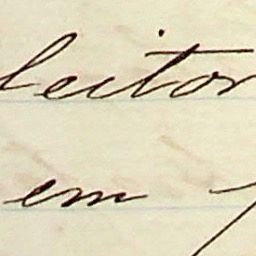 leitor
em